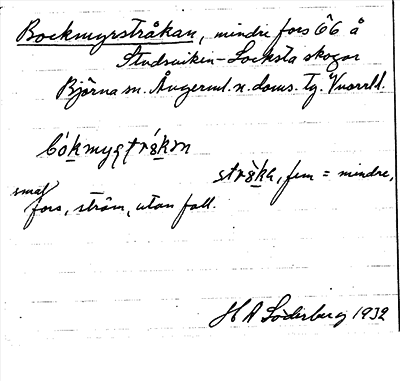 Bockmyrstråkan, mindre fors 66 å
Studsviken-Locksta skogar
Björna sn. Ångerml. n. doms. Tg. Vnorrl l.
bókmyɾʈrȧkɜn
strȧ̀ka, fem = mindre,
smal
fors, ström, utan fall.
H A Söderberg 1932